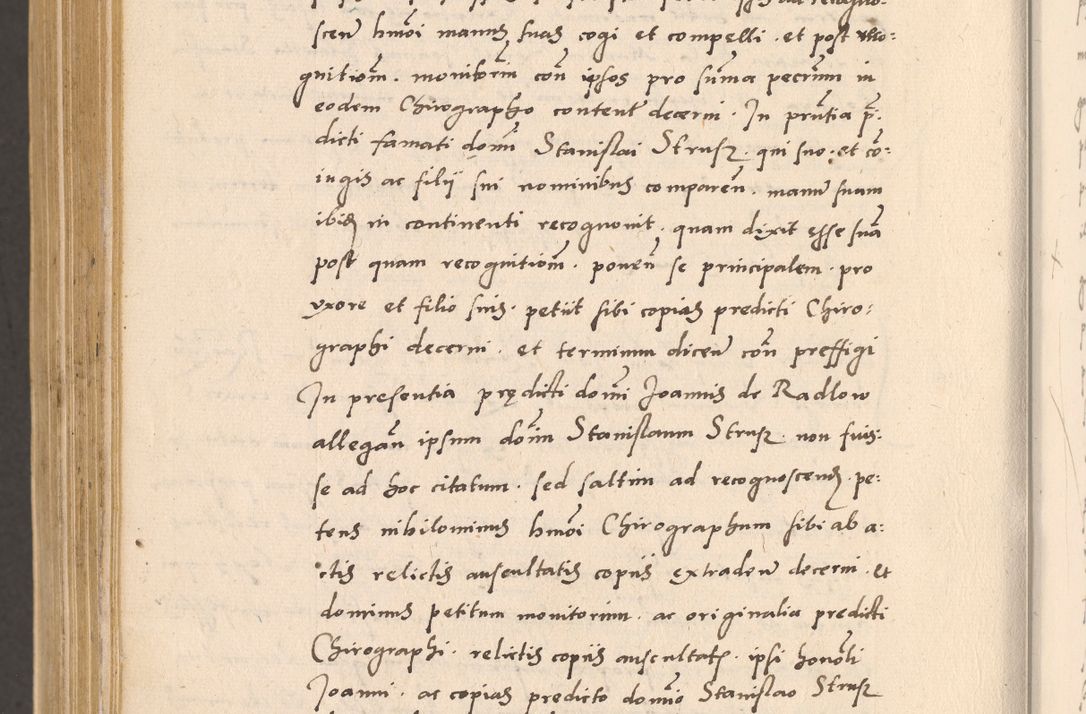 scen hmoi manus suas cogi et compelli · et post reco:
gnitiom · monitorin con ipsos pro suma pecrum in
eodem Chirographo content decerni · In pruntia p̄:
dicti famati domi Stanislai Strusz · qui suo · et co:
iugis ac filij sui nominibus comparen · manu suam
ibid in continenti recognouit · quam dixit esse sua
post quam recognitiom · ponen se principalem · pro
vxore et filio suis · petiit sibi copias predicti Chiro:
graphi decerni · et terminum dicen con preffigi
In presentia prędicti domi Joannis de Radlow
allegan ipsum domin Stanislaum Strusz non fuis:
se ad hoc citatum · sed saltim ad recognoscend · pe:
tens nihilominus hmoi Chirographum sibi ab a:
ctis relictis auscultatis copiis extraden decerni · Et
dominus petitum monitorium · ac originalia predicti
Chirographi · relictis copiis auscultatis · ipsi honoli
Joanni · ac copias predicto domino Stanislao Strusz